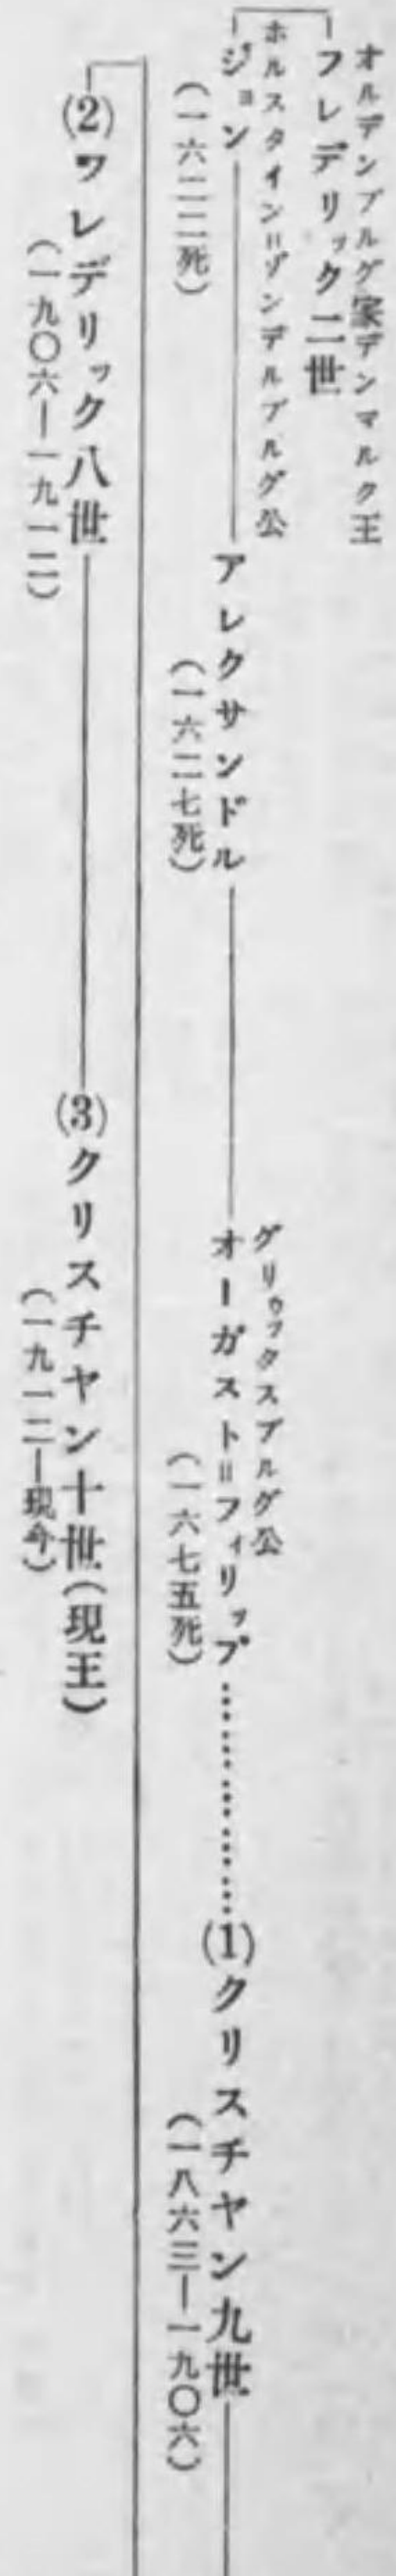 オルデンブルグ家デンマルク王
フレデリック二世
ホルスタイン=ゾンデルブルグ公
ジョン
(一六二二死)
アレクサンドル
(一六二七死)
グリゥックスブルグ公
オーガスト=フィリップ
(一六七五死)
(1)クリスチヤン九世
(一八六三―一九〇六)
(2)フレデリック八世
(一九〇六―一九一二)
(3)クリスチヤン十世(現王)
(一九一二―現今)